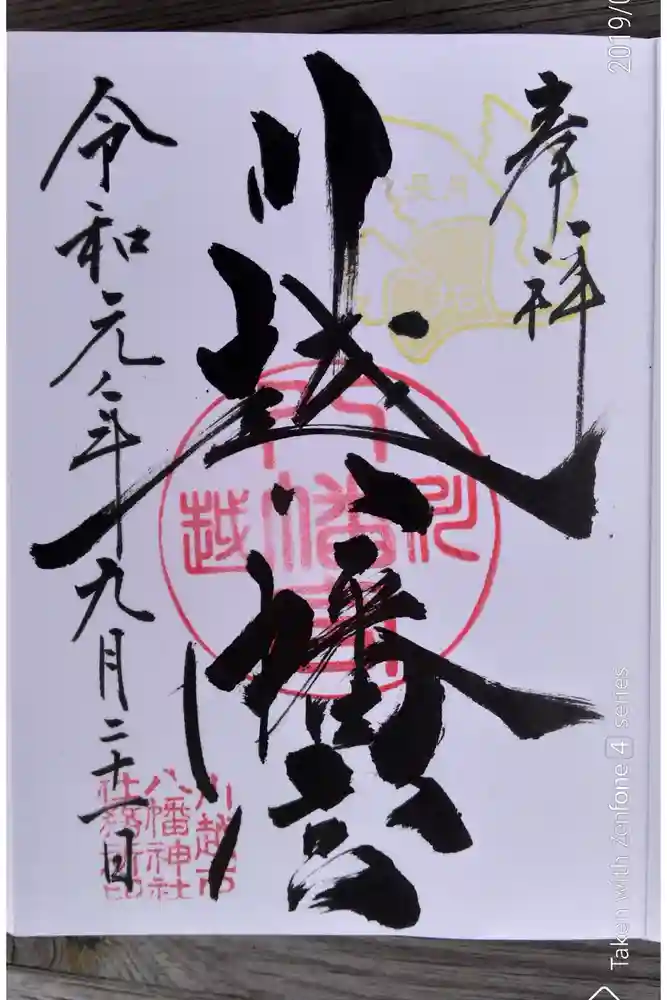 奉拝
川越八幡宮
令和元年九月二十一日
川越
八幡宮
川越市
八幡神社
社務所印
2019/0
Taken with Zenfone 4 series